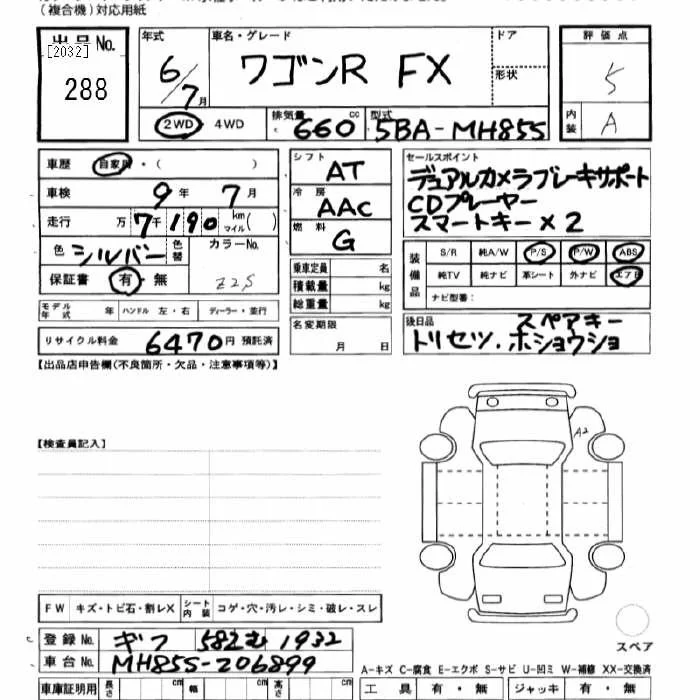 (複合機)対応用紙
出品No.
[2032]
288
年式
6/7月
車名・グレード
ワゴンR FX
ドア
形状
評価点
5
内装
A
2WD・4WD
排気量
660cc
型式
5BA-MH85S
車歴
自家用・( )
車検
9年7月
走行
万7千190km マイル( )
色
シルバー
色替
カラーNo.
Z2S
保証書
有・無
シフト
AT
冷房
AAC
燃料
G
乗車定員 名
積載量 kg
総重量 kg
セールスポイント
デュアルカメラブレーキサポート
CDプレーヤー
スマートキー×2
装備品
S/R 純A/W P/S P/W ABS
純TV 純ナビ 革シート 外ナビ エアB
ナビ型番:
モデル年式 年 ハンドル 左・右 ディーラー・並行
リサイクル料金
6470円 預託済
名変期限
月 日
後日品
スペアキー
トリセツ.ホショウショ
【出品店申告欄(不良箇所・欠品・注意事項等)】
A2
【検査員記入】
FW キズ・トビ石・割レX シート内装 コゲ・穴・汚レ・シミ・破レ・スレ
スペア
登録No.
ギフ 582む1932
車台No.
MH85S-206899
A-キズ C-腐食 E-エクボ S-サビ U-凹ミ W-補修 XX-交換済
車庫証明用 長さ cm 幅 cm 高さ cm
工具 有・無 ジャッキ 有・無